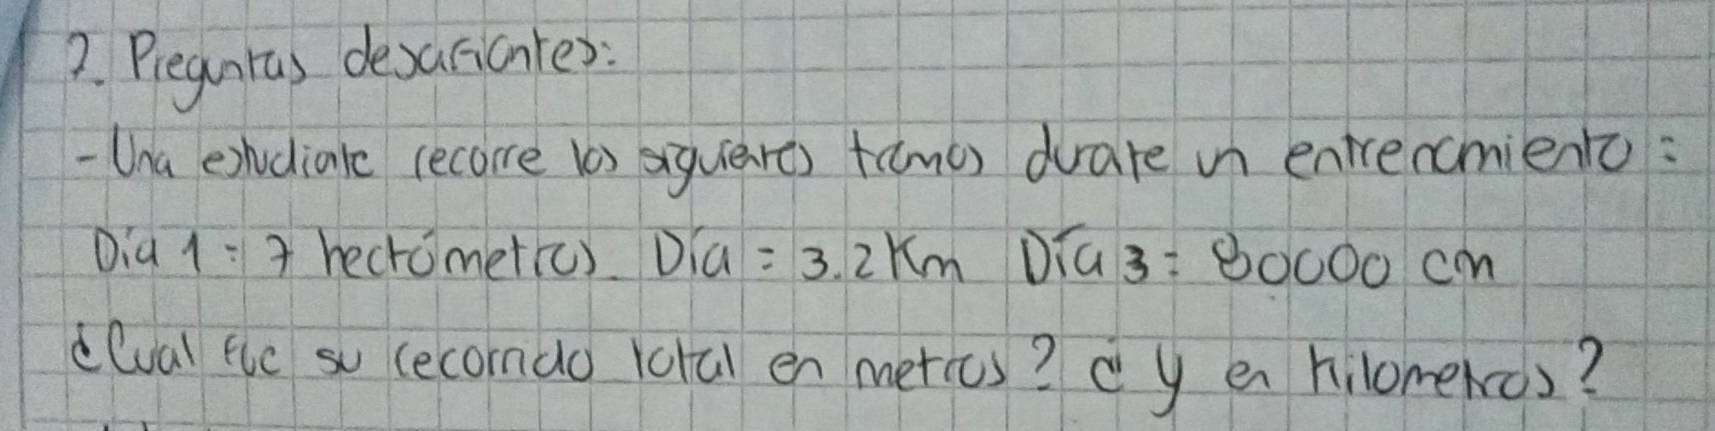 2. Preguntas desafiantes:
- Una estudiante recorre los siguientes tramos durate un entrenamiento:
Día 1 = 7 hectómetros. Día = 3.2 Km Día 3 = 80000 cm
¿Cual fue su recorrido total en metros? ¿ y en kilometros?